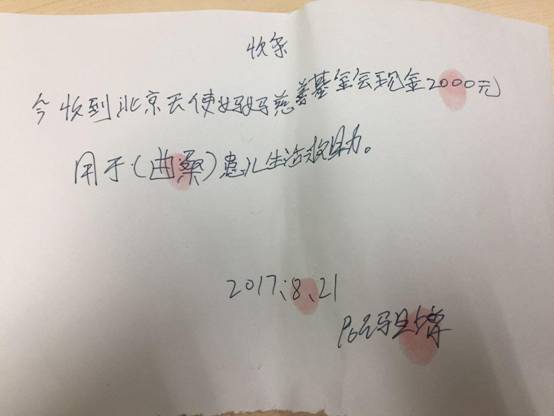 收条
今收到北京天使妈妈慈善基金会现金2000元
用于(曲桑)患儿生活救助。
2017.8.21